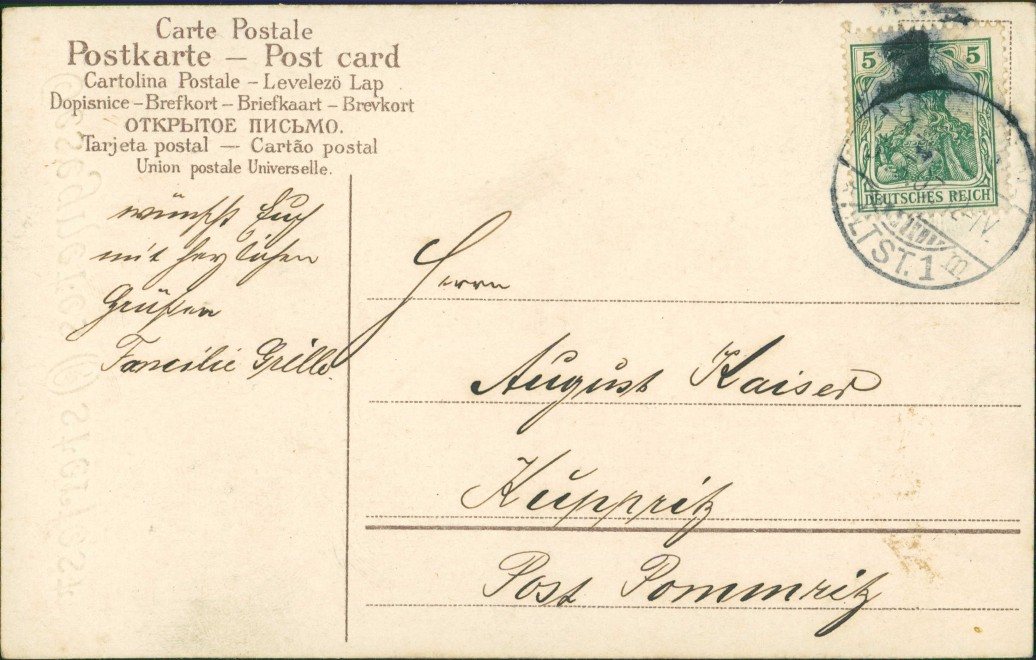 Carte Postale
Postkarte — Post card
Cartolina Postale – Levelező Lap
Dopisnice – Brefkort – Briefkaart – Brevkort
ОТКРЫТОЕ ПИСЬМО.
Tarjeta postal — Cartão postal
Union postale Universelle.
wünscht Euch
mit herzlichen
Grüßen
Familie Grille.
5 5
DEUTSCHES REICH
ALTST. 1
Herrn
August Kaiser
Kuppritz
Post Pommritz